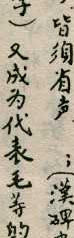 皆須省声；（漢
）又成为代表毛等的